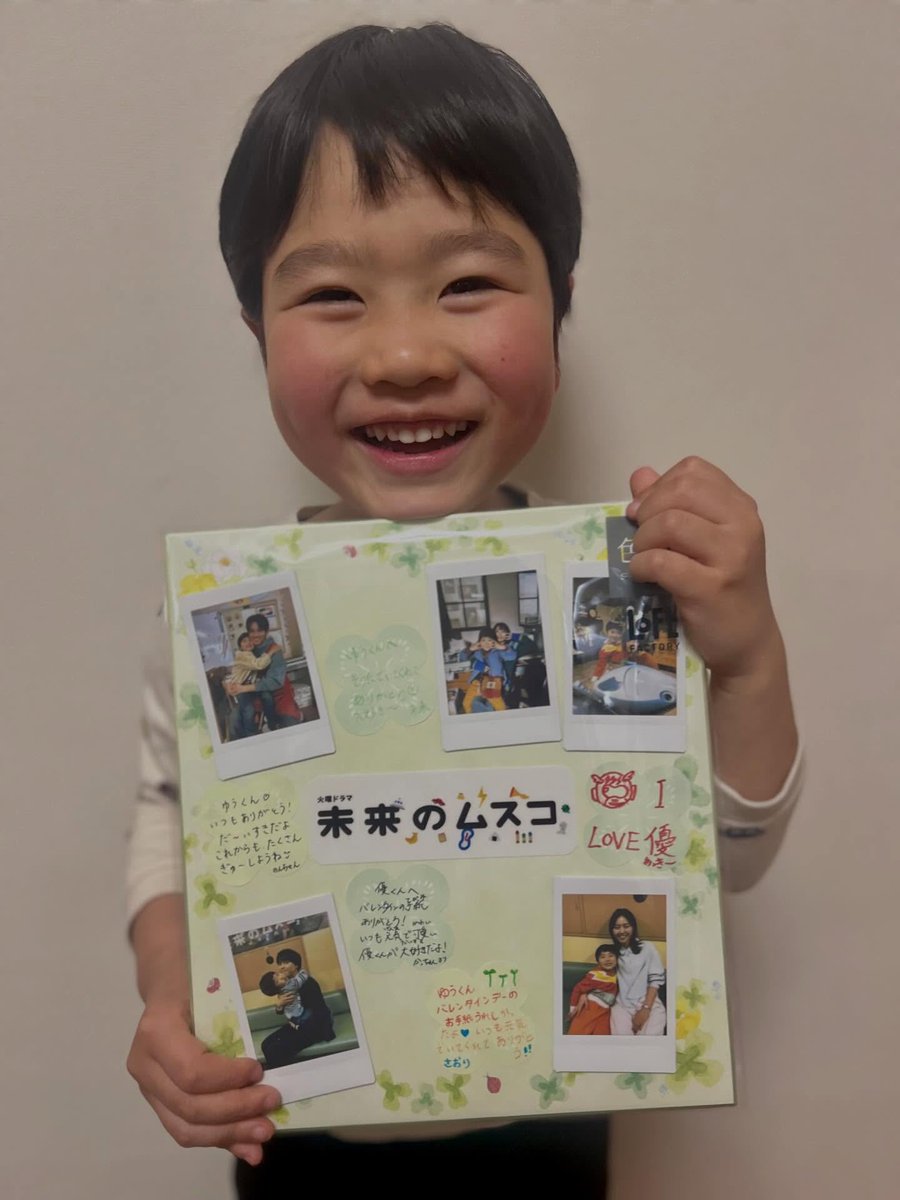 色
LOFT
FACTORY
ゆうくんへ
ありがとう
火曜ドラマ
未来のムスコ
I
LOVE 優
あっきー
ゆうくん♡
いつもありがとう!
だ〜いすきだよ
これからも たくさん
ぎゅーしようね
のんちゃん
優くんへ
バレンタインの手紙
ありがとう!
いつも元気で可愛い
優くんが大好きだよ!
かっちゃん
未来のムスコ
ゆうくん
バレンタインデーの
お手紙うれしかっ
たよ♥いつも元気
でいてくれて ありがと
う!!
さおり